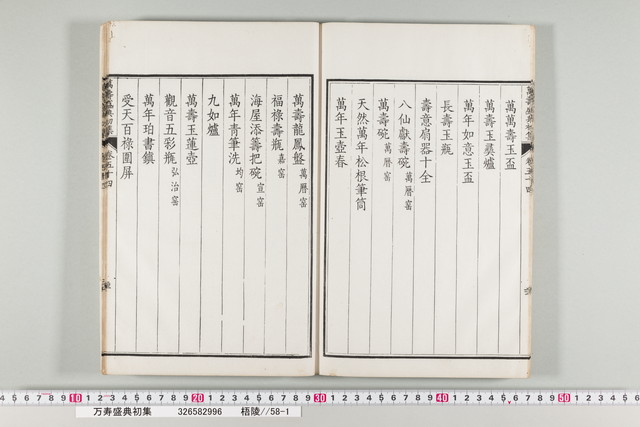 萬萬壽玉盃
萬壽玉彞爐
萬年如意玉盃
長壽玉瓶
壽意扇器十全
八仙獻壽碗 萬曆窑
萬壽碗 萬曆窑
天然萬年松根筆筒
萬年玉壺春
萬壽龍鳳盤 萬曆窑
福祿壽瓶 嘉窑
海屋添籌把碗 宣窑
萬年青筆洗 均窑
九如爐
萬壽玉蓮壺
觀音五彩瓶 弘治窑
萬年珀書鎮
愛天百祿圍屏
10 20 30 40 50
万寿盛典初集 326582996 梧陵//58-1